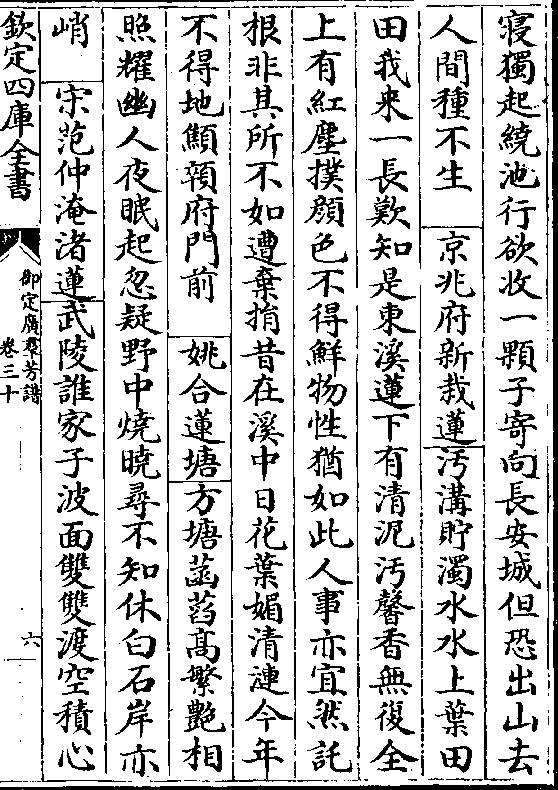 寝獨起繞池行欲收一顆子寄向長安城但恐出山去
人間種不生　京兆府新栽蓮汚溝貯濁水水上葉田
田我来一長歎知是東溪蓮下有清泥汚馨香無復全
上有紅塵撲顔色不得鮮物性猶如此人事亦宜然託
根非其所不如遭棄捐昔在溪中日花葉媚清漣今年
不得地顦顇府門前　姚合蓮塘方塘菡萏髙繁艷相
照耀幽人夜眠起忽疑野中燒曉尋不知休白石岸亦
峭　宋范仲淹渚蓮武陵誰家子波面雙雙渡空積心
欽定四庫全書
御定廣羣芳譜
卷三十
六